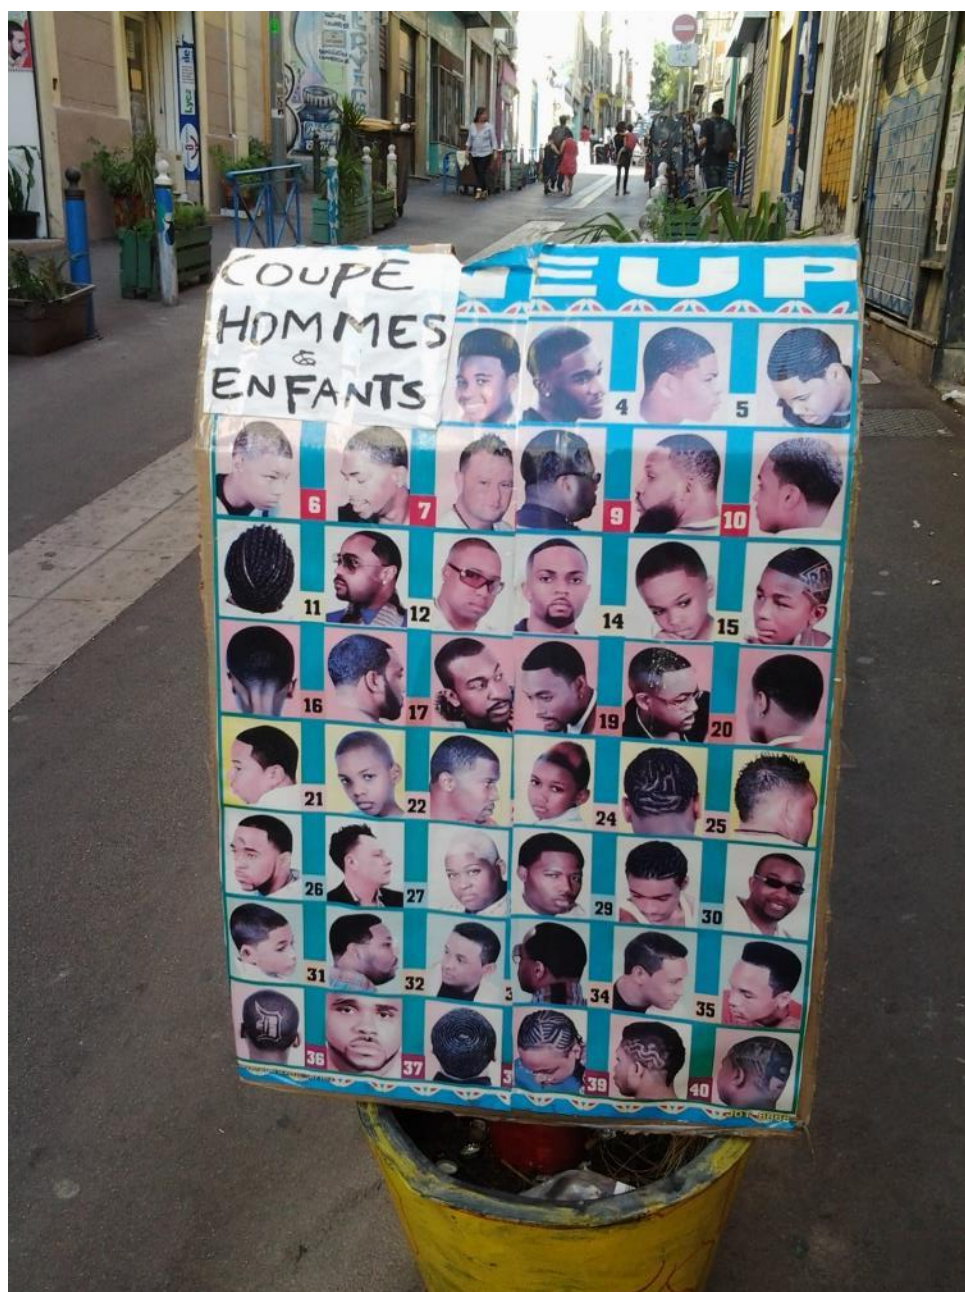 COUPE
HOMMES
&
ENFANTS
EUP
4 5
6 7 9 10
11 12 14 15
16 17 19 20
21 22 24 25
26 27 29 30
31 32 34 35
36 37 39 40
Lyca